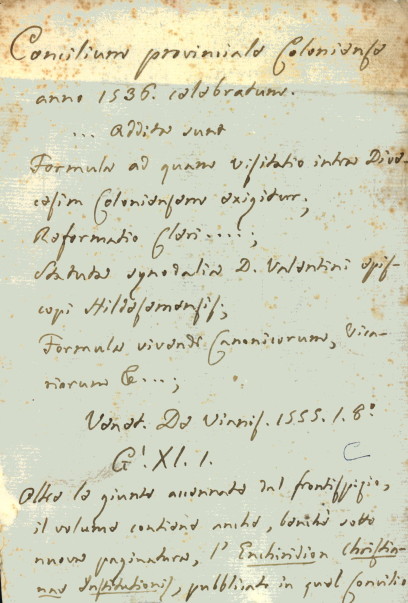 Concilium provinciale Coloniense
anno 1536. celebratum.
... Addita sunt
Formula ad quam visitatio intra Dioe-
cesim Coloniensem exigitur;
Reformatio Cleri....;
Statuta synodalia D. Valentini epis-
copi Hildesemensis;
Formula vivendi Canonicorum, Vica-
riorum &...;
Venet. De Vianis. 1555. 1. 8.º
G'. XI. 1.
Oltre le giunte accennate dal frontispizio,
il volume contiene anche, benchè sotto
nuova paginatura, l' Enchiridion Christia-
nae Institutionis, pubblicato in quel Concilio